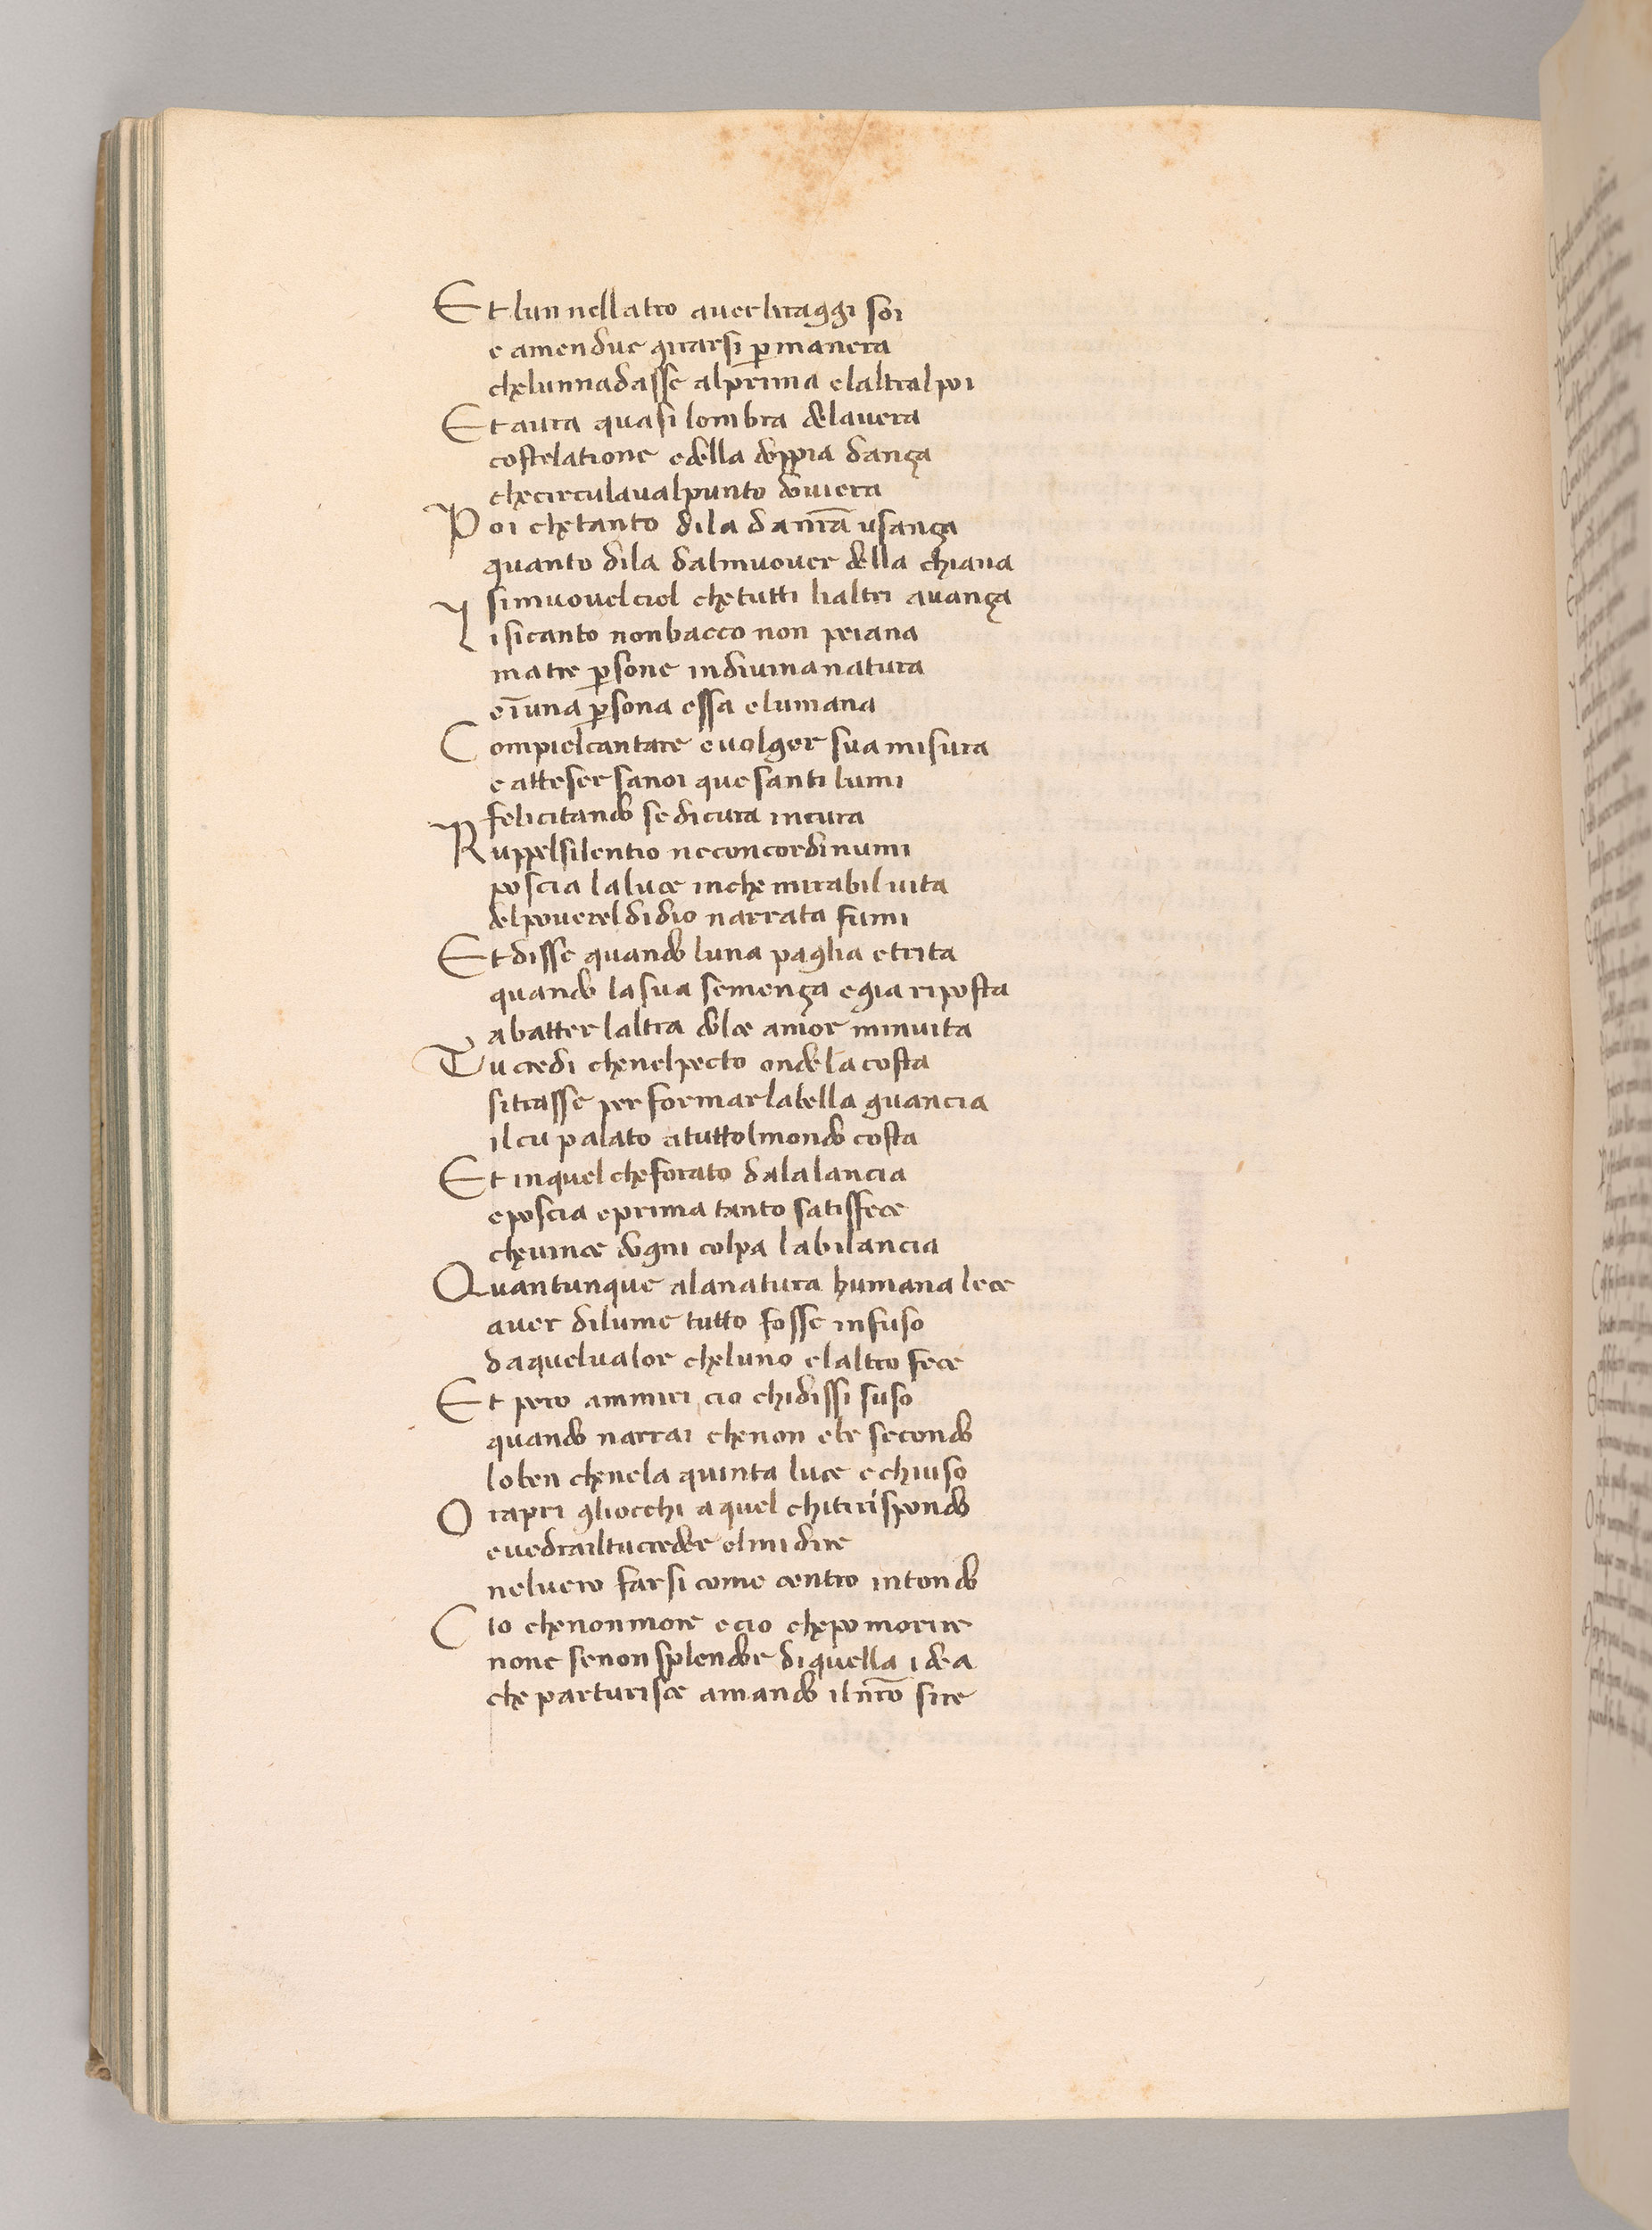 Et lun nell atro aver li raggi soi
e amendue girarsi p̱ manera
che lunnadasse al prima e laltral poi
Et aura quasi lombra de la vera
costelatione e della doppia dança
che circulaval punto dovi era
Poi che tanto di la da nr̄a usança
quanto di la dal muover della chiana
si muovel ciel che tutti li altri avança
Li si canto non bacco non peiana
ma tre p̱sone in divina natura
e ī una p̱sona essa e lumana
Compiel cantare e volger sua misura
e attesersanoi que santi lumi
felicitando se di cura in cura
Ruppel silentio ne concordi numi
poscia la luce in che mirabil vita
del poverel di dio narrata fumi
Et disse quando luna paglia e trita
quando la sua semença e gia riposta
a batter laltra dolce amor minvita
Tu credi che nel pecto onde la costa
si trasse per formar la bella guancia
il cu palato a tuttol mondo costa
Et in quel che forato da la lancia
e poscia e prima tanto satisfece
che vince dogni colpa la bilancia
Quantunque a la natura humana lece
aver di lume tutto fosse infuso
da quel valor che luno e laltro fece
Et pero ammiri cio chi dissi suso
quando narrai che non ebe secondo
lo ben che ne la quinta luce e chiuso
Or apri gliocchi a quel chi ti rispondo
e vedrai il tu credere el mi dire
nel vero farsi come centro in tondo
Cio che non more e cio che po morire
none se non splendor di quella idea
che parturisce amando il nr̄o sire